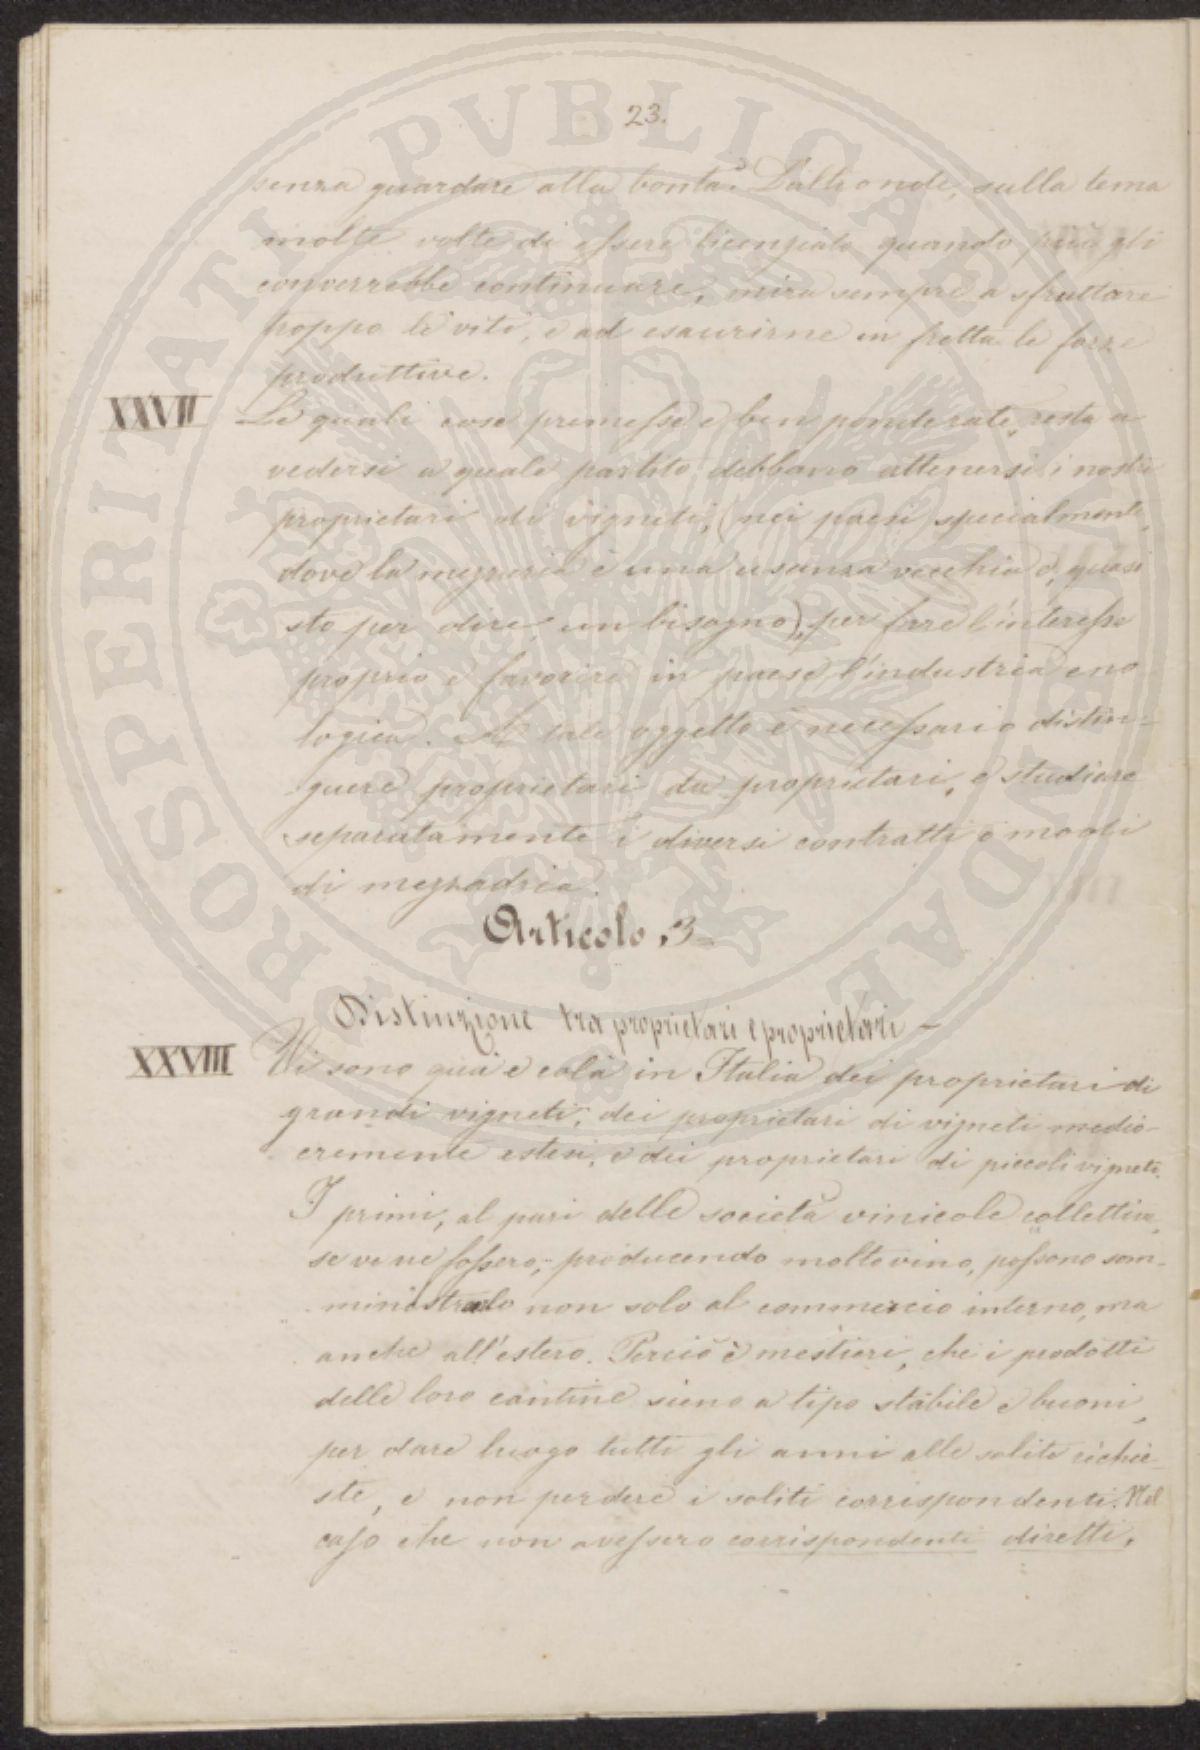 23.
senza guardare alla bontà. D'altronde, sulla tema
molte volte di essere licenziato quando più gli
converrebbe continuare, mira sempre a sfruttare
troppo le viti, e ad esaurirne in fretta le forze
produttive.
XXVII Le quali cose premesse e ben ponderate, resta a
vedersi a quale partito debbano attenersi i nostri
proprietari di vigneti, (nei paesi specialmente,
dove la mezzeria è una usanza vecchia e, quasi
sto per dire, un bisogno), per fare l'interesse
proprio e favorire in paese l'industria eno
logica. A tale oggetto è necessario distin-
guere proprietari da proprietari, e studiare
separatamente i diversi contratti o modi
di mezzadria.
Articolo 3
Distinzione tra proprietari e proprietari -
XXVIII Vi sono quà e colà in Italia dei proprietari di
grandi vigneti, dei proprietari di vigneti medio-
cremente estesi, e dei proprietari di piccoli vigneti.
I primi, al pari delle società vinicole collettive,
se ve ne fossero, producendo molto vino, possono som-
ministrarlo non solo al commercio interno, ma
anche all'estero. Perciò è mestieri, che i prodotti
delle loro cantine sieno a tipo stabile e buoni,
per dare luogo tutti gli anni alle solite richie-
ste, e non perdere i soliti corrispondenti. Nel
caso che non avessero corrispondenti diretti,
PROSPERITATI PVBLICAE